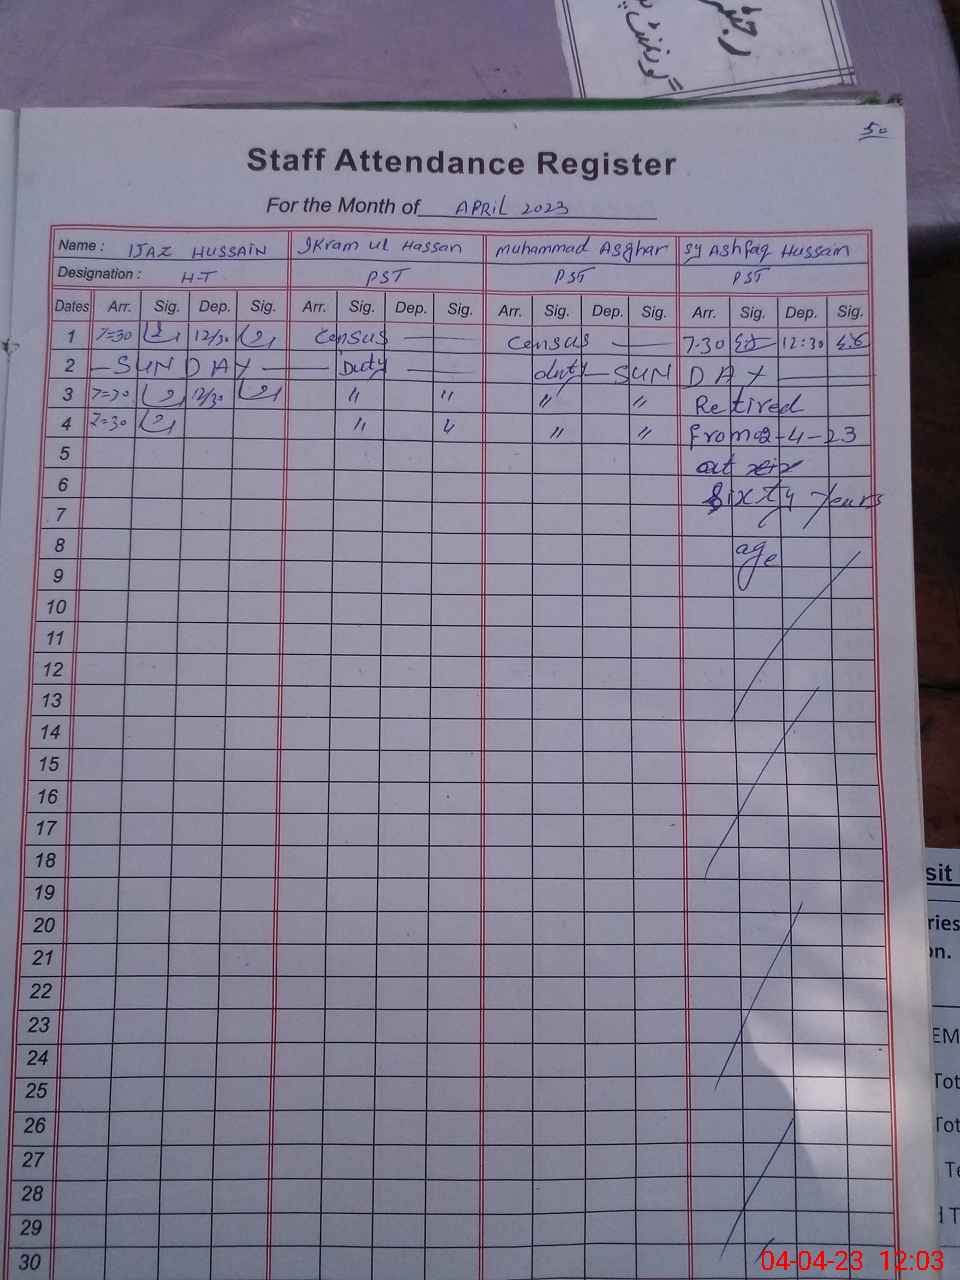 رجسٹر
گورنمنٹ
50
Staff Attendance Register
For the Month of APRIL 2023
Name : IJAZ HUSSAIN Ikram ul Hassan Muhammad Asghar Sy Ashfaq Hussain
Designation : H-T PST PST PST
Dates Arr. Sig. Dep. Sig. Arr. Sig. Dep. Sig. Arr. Sig. Dep. Sig. Arr. Sig. Dep. Sig.
1 7=30 12/30 Census Census 7.30 12:30
2 SUNDAY Duty duty SUNDAY
3 7=30 12/30 " " " " Retired
4 7=30 " " " " from 02-4-23
5 at
6 Sixty Years
7
8 age
9
10
11
12
13
14
15
16
17
18
19
20
21
22
23
24
25
26
27
28
29
30
sit
ries
on.
EM
Tot
Tot
Te
04-04-23 12:03